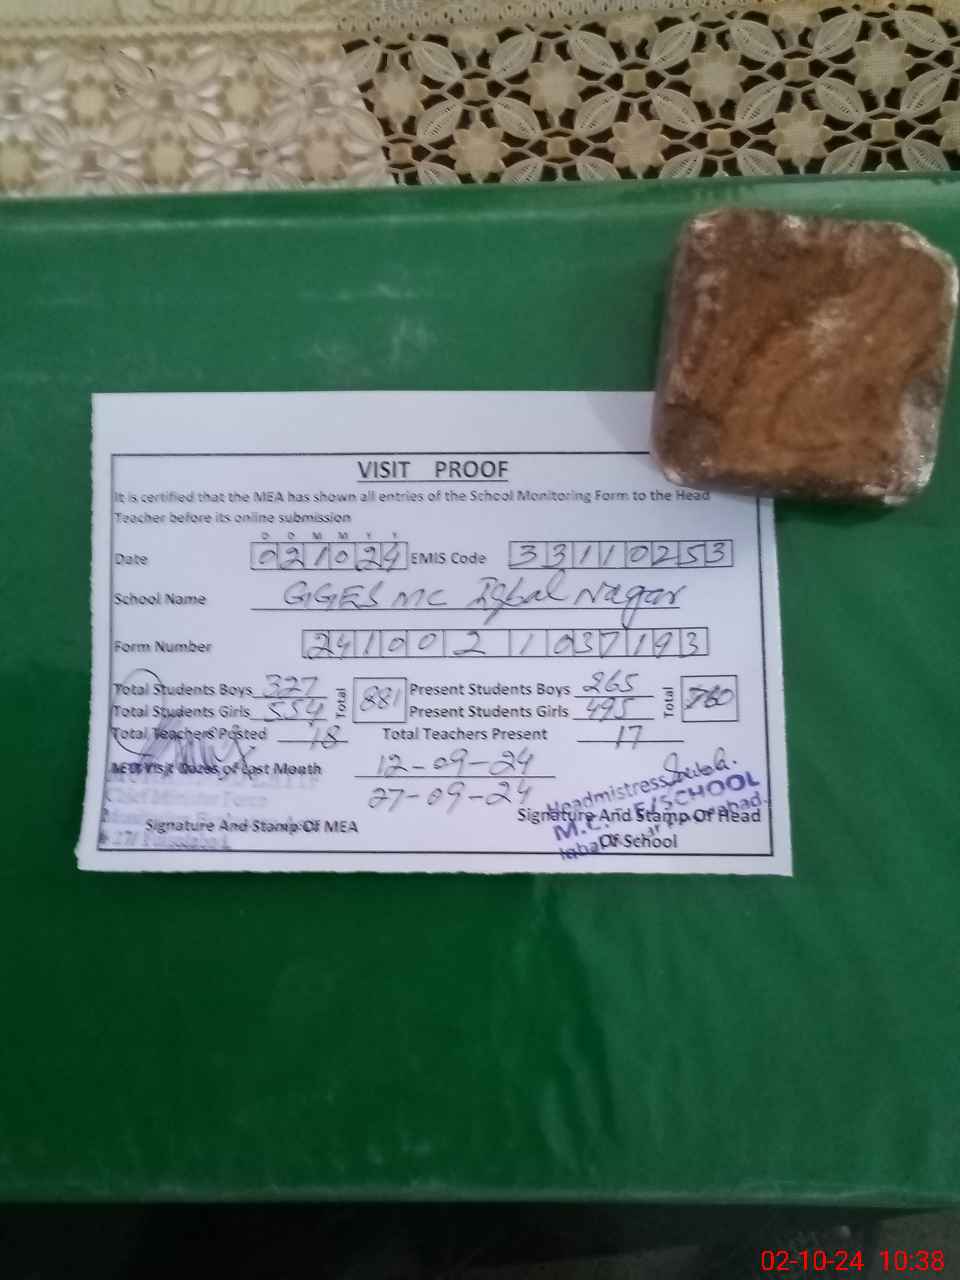 VISIT PROOF
It is certified that the MEA has shown all entries of the School Monitoring Form to the Head
Teacher before its online submission
D D M M Y Y
Date 021024 EMIS Code 33110253
School Name GGES MC Iqbal Nagar
Form Number 24100 2 1037193
Total Students Boys 327 Total 881 Present Students Boys 265 Total 760
Total Students Girls 554 Present Students Girls 495
Total Teachers Posted 18 Total Teachers Present 17
MEA Visit Dates of Last Month 12-09-24
27-09-24
Headmistress
M.C. E/SCHOOL
Signature And Stamp Of MEA
Signature And Stamp Of Head
Of School
02-10-24 10:38